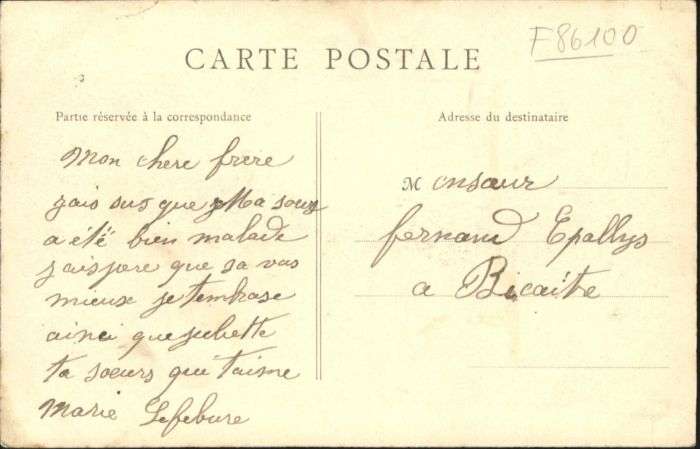 F86100
CARTE POSTALE
Partie réservée à la correspondance
Adresse du destinataire
Mon chere frere
jais sus que Ma soeur
a été bien malade
jaispere que sa vas
mieux je tembrase
ainci que juliette
ta soeurs qui t'aime
Marie Lefebure
Monsieur
fernand Epallys
a Bicaitre